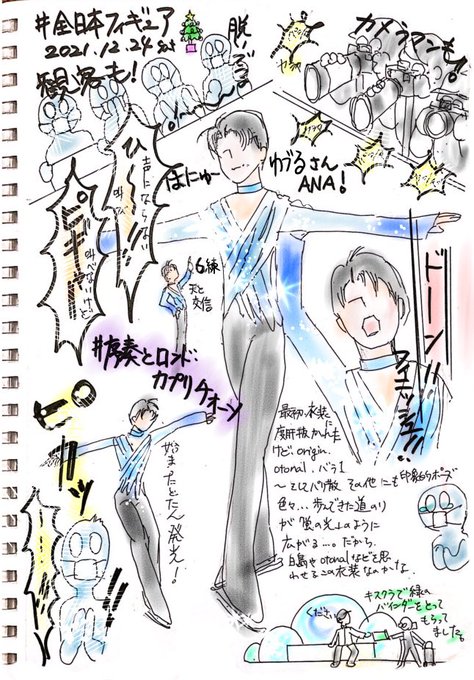 #全日本フィギュア
2021.12.24 sat
観客も!
脱
カメラマンも!
ひ〜
声にならない
叫べないけど
はにゅ〜
ゆづるさん
ANA!
6練
天と
交信
#序奏とロンド・
カプリチオーソ
ドーン!!
フィニッシュ!!
ピカッ
始まったとたん発光!
最初、衣装に
度肝抜かれた
けど、origin.
otonal.バラ1
〜そしてバリ散 その他にも印象的ポーズ
色々…歩んできた道のり
が
のように
広がる…。だから、
白鳥やotonalなどを思
わせるこの衣装なのかな。
ください
キスクラで緑の
バインダーをとって
もらって
ました。